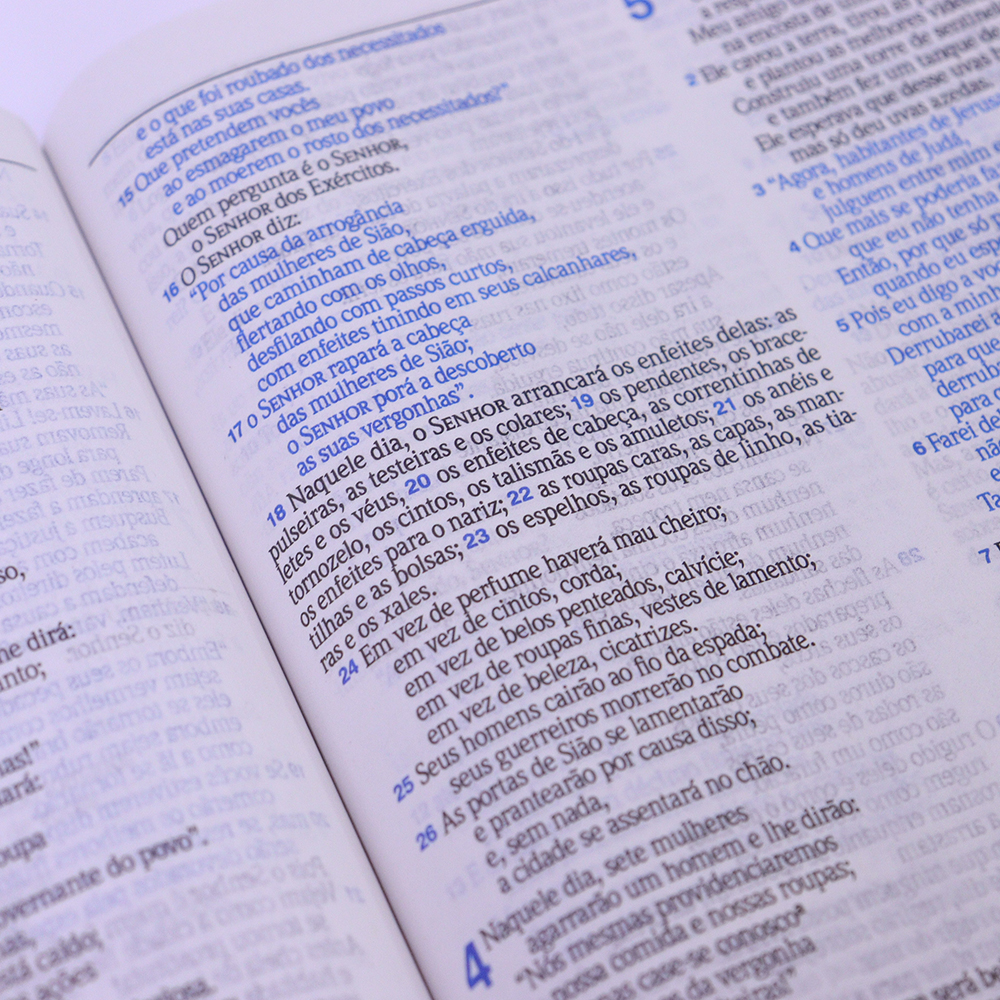 so,
ne dirá:
nto;
nas!"
nará:
oupa
overnante do povo".
as,
stá caído;
ações
e o que foi roubado dos necessitados
está nas suas casas.
15 Que pretendem vocês
ao esmagarem o meu povo
e ao moerem o rosto dos necessitados?"
Quem pergunta é o SENHOR,
o SENHOR dos Exércitos.
16 O SENHOR diz:
"Por causa da arrogância
das mulheres de Sião,
que caminham de cabeça erguida,
flertando com os olhos,
desfilando com passos curtos,
com enfeites tinindo em seus calcanhares,
17 o SENHOR rapará a cabeça
das mulheres de Sião;
o SENHOR porá a descoberto
as suas vergonhas".
18 Naquele dia, o SENHOR arrancará os enfeites delas: as
pulseiras, as testeiras e os colares; 19 os pendentes, os brace-
letes e os véus, 20 os enfeites de cabeça, as correntinhas de
tornozelo, os cintos, os talismãs e os amuletos; 21 os anéis e
os enfeites para o nariz; 22 as roupas caras, as capas, as man-
tilhas e as bolsas; 23 os espelhos, as roupas de linho, as tia-
ras e os xales.
24 Em vez de perfume haverá mau cheiro;
em vez de cintos, corda;
em vez de belos penteados, calvície;
em vez de roupas finas, vestes de lamento;
em vez de beleza, cicatrizes.
25 Seus homens cairão ao fio da espada;
seus guerreiros morrerão no combate.
26 As portas de Sião se lamentarão
e prantearão por causa disso;
e, sem nada,
a cidade se assentará no chão.
4 Naquele dia, sete mulheres
agarrarão um homem e lhe dirão:
"Nós mesmas providenciaremos
nossa comida e nossas roupas;
case-se conosco
da vergonha
5
Meu amigo
na encosta de
2 Ele cavou a terra, tirou as
e plantou as melhores vid
Construiu uma torre de sentinel
e também fez um tanque de
Ele esperava que desse uvas
mas só deu uvas azedas.
3 "Agora, habitantes de Jerus
e homens de Judá,
julguem entre mim e
4 Que mais se poderia fa
que eu não tenha
Então, por que só
quando eu esp
5 Pois eu digo a vo
com a minh
Derrubarei
para que
derrub
para
6 Farei de
nã
e
Ta
7
será be